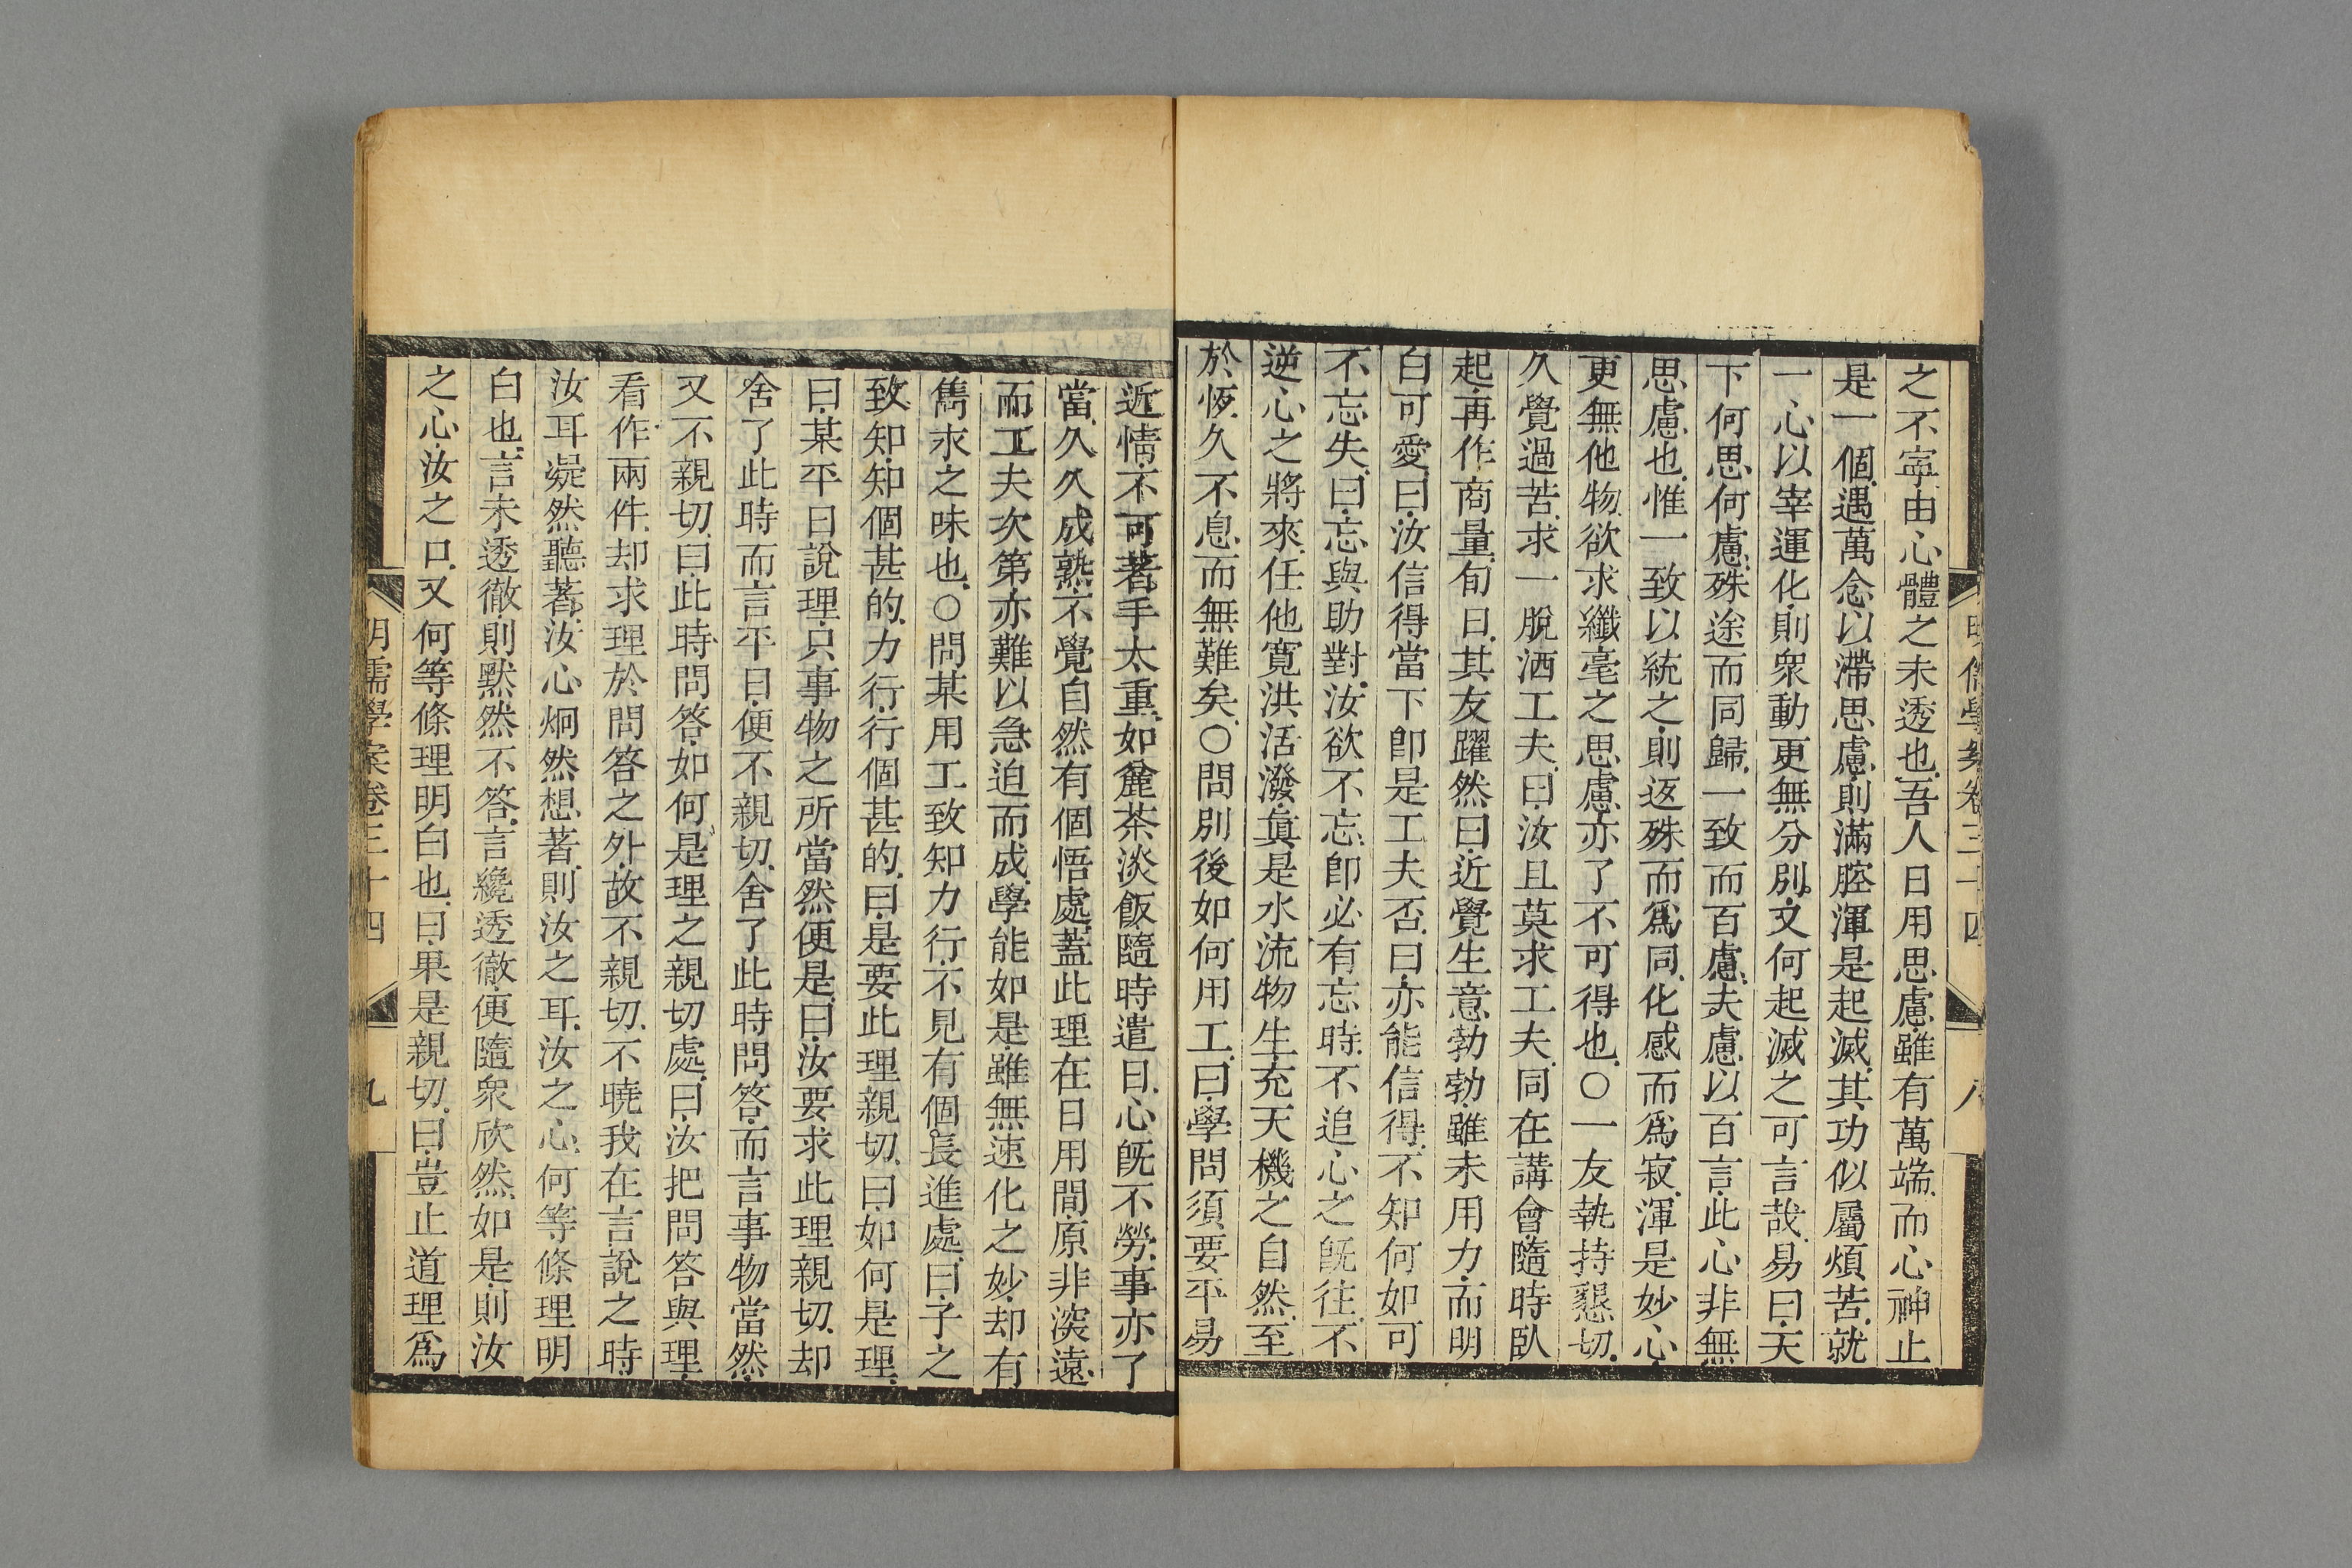 之不寧由心體之未透也吾人日用思慮雖有萬端而心神止
是一個遇萬念以滯思慮則滿腔渾是起滅其功似屬煩苦就
一心以宰運化則衆動更無分別又何起滅之可言哉易曰天
下何思何慮殊途而同歸一致而百慮夫慮以百言此心非無
思慮也惟一致以統之則返殊而爲同化感而爲寂渾是妙心
更無他物欲求纖毫之思慮亦了不可得也○一友執持懇切
久覺過苦求一脫洒工夫曰汝且莫求工夫同在講會隨時臥
起再作商量旬日其友躍然曰近覺生意勃勃雖未用力而明
白可愛曰汝信得當下卽是工夫否曰亦能信得不知何如可
不忘失曰忘與助對汝欲不忘卽必有忘時不追心之旣往不
逆心之將來任他寬洪活潑眞是水流物生充天機之自然至
於恆久不息而無難矣○問別後如何用工曰學問須要平易
明儒學案卷三十四
八
近情不可著手太重如麄茶淡飯隨時遣日心旣不勞事亦了
當久久成熟不覺自然有個悟處蓋此理在日用間原非深遠
而工夫次第亦難以急迫而成學能如是雖無速化之妙却有
雋永之味也○問某用工致知力行不見有個長進處曰子之
致知知個甚的力行行個甚的曰是要此理親切曰如何是理
曰某平日說理只事物之所當然便是曰汝要求此理親切却
舍了此時而言平日便不親切舍了此時問答而言事物當然
又不親切曰此時問答如何是理之親切處曰汝把問答與理
看作兩件却求理於問答之外故不親切不曉我在言說之時
汝耳凝然聽著汝心炯然想著則汝之耳汝之心何等條理明
白也言未透徹則默然不答言纔透徹便隨衆欣然如是則汝
之心汝之口又何等條理明白也曰果是親切曰豈止道理爲
明儒學案卷三十四
九